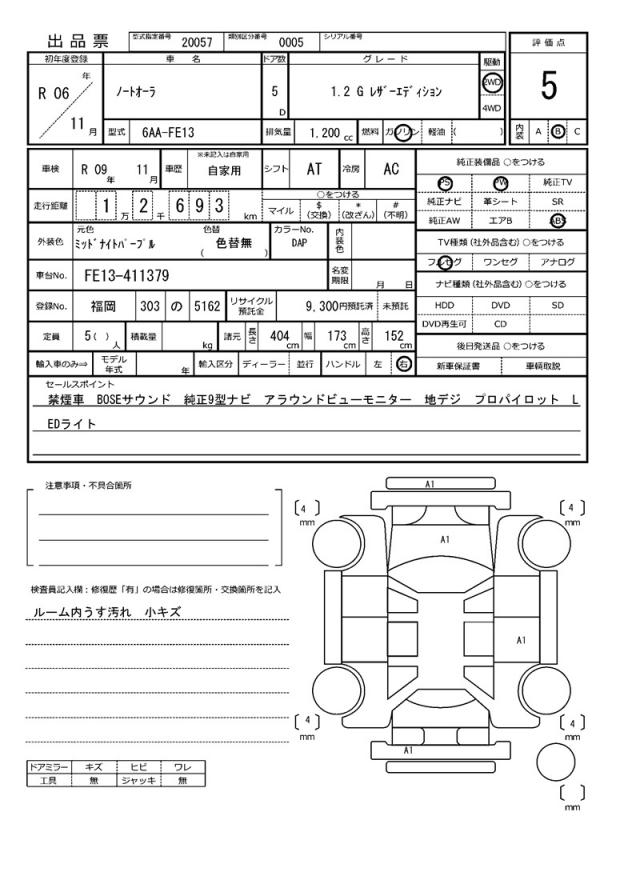 出品票 型式指定番号 20057 類別区分番号 0005 シリアル番号
評価点
初年度登録 車名 ドア数 グレード 駆動
R 06 年 11 月 ノートオーラ 5 D 1.2 G レザーエディション 2WD 4WD
5
型式 6AA-FE13 排気量 1.200 cc 燃料 ガソリン 軽油 ( )
内装 A B C
車検 R 09 年 11 月 車歴 ※未記入は自家用 自家用 シフト AT 冷房 AC
走行距離 1 万 2 千 6 9 3 km ○をつける
マイル $ (交換) * (改ざん) # (不明)
外装色 元色 ミッドナイトパープル 色替 ( 色替無 ) カラーNo. DAP 内装色
車台No. FE13-411379 名変期限 月 日
登録No. 福岡 303 の 5162 リサイクル預託金 9,300円預託済 未預託
定員 5( ) 人 積載量 kg 諸元 長さ 404 cm 幅 173 cm 高さ 152 cm
輸入車のみ⇒ モデル年式 年 輸入区分 ディーラー 並行 ハンドル 左 右
純正装備品 ○をつける
PS PW 純正TV
純正ナビ 革シート SR
純正AW エアB ABS
TV種類 (社外品含む) ○をつける
フルセグ ワンセグ アナログ
ナビ種類 (社外品含む) ○をつける
HDD DVD SD
DVD再生可 CD
後日発送品 ○をつける
新車保証書 車輌取説
セールスポイント
禁煙車 BOSEサウンド 純正9型ナビ アラウンドビューモニター 地デジ プロパイロット L
EDライト
注意事項・不具合箇所
検査員記入欄：修復歴「有」の場合は修復箇所・交換箇所を記入
ルーム内うす汚れ 小キズ
ドアミラー キズ ヒビ ワレ
工具 無 ジャッキ 無
A1
〔 4 〕 mm
〔 4 〕 mm
A1
A1
〔 4 〕 mm
〔 4 〕 mm
A1
〔 〕 mm